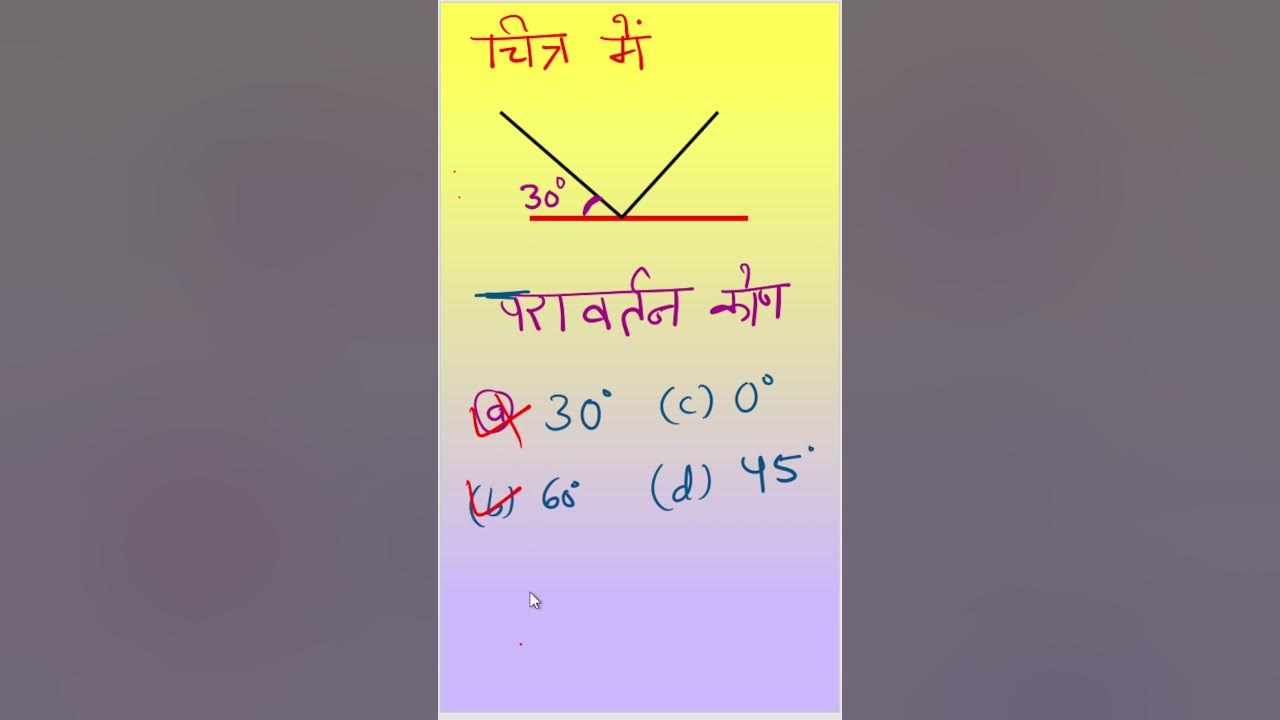 चित्र में
30°
परावर्तन कोण
(a) 30° (c) 0°
(b) 60° (d) 45°